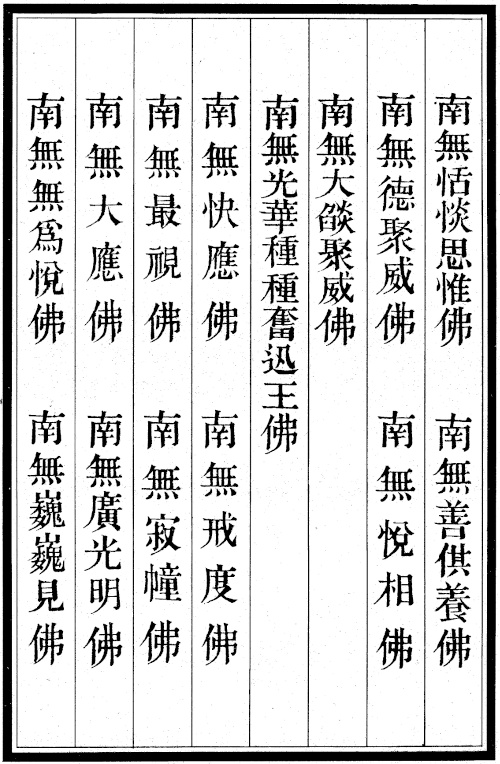 南無恬惔思惟佛　南無善供養佛
南無德聚威佛　南無悅相佛
南無大燄聚威佛
南無光華種種奮迅王佛
南無快應佛　南無戒度佛
南無最視佛　南無寂幢佛
南無大應佛　南無廣光明佛
南無無爲悅佛　南無巍巍見佛